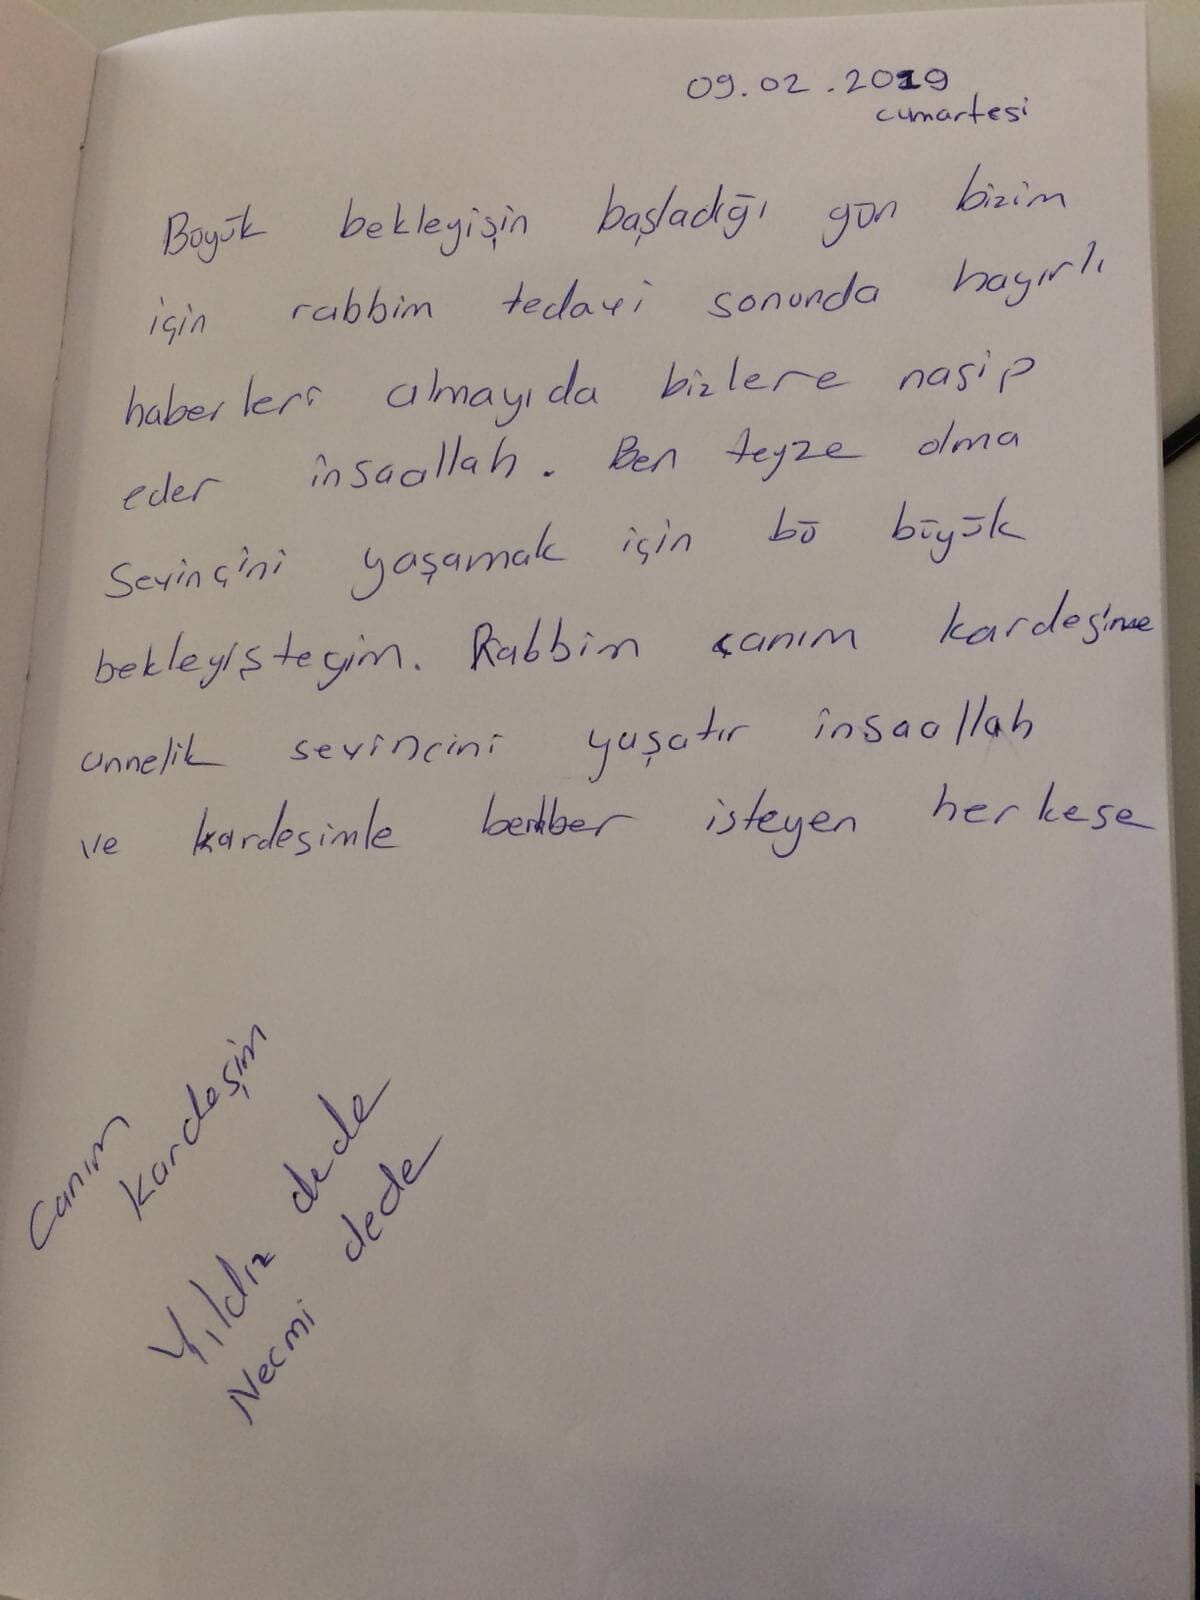 09.02.2019
cumartesi
Büyük bekleyişin başladığı gün bizim
için rabbim tedavi sonunda hayırlı
haberleri almayıda bizlere nasip
eder insaallah. Ben teyze olma
Sevinçini yaşamak için bü büyük
bekleyişteyim. Rabbim canım kardeşime
annelik sevinçini yaşatır insaallah
ve kardeşimle beraber isteyen herkese
Canım
kardeşim
Yıldız dede
Necmi dede